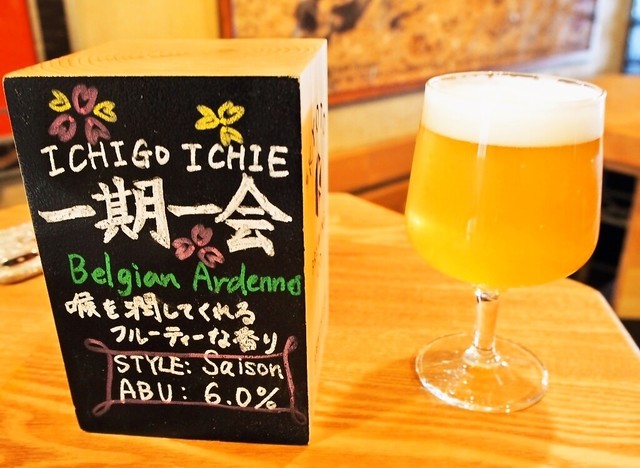 ICHIGO ICHIE
一期一会
Belgian Ardennes
喉を潤してくれる
フルーティーな香り
STYLE: Saison
ABU: 6.0%